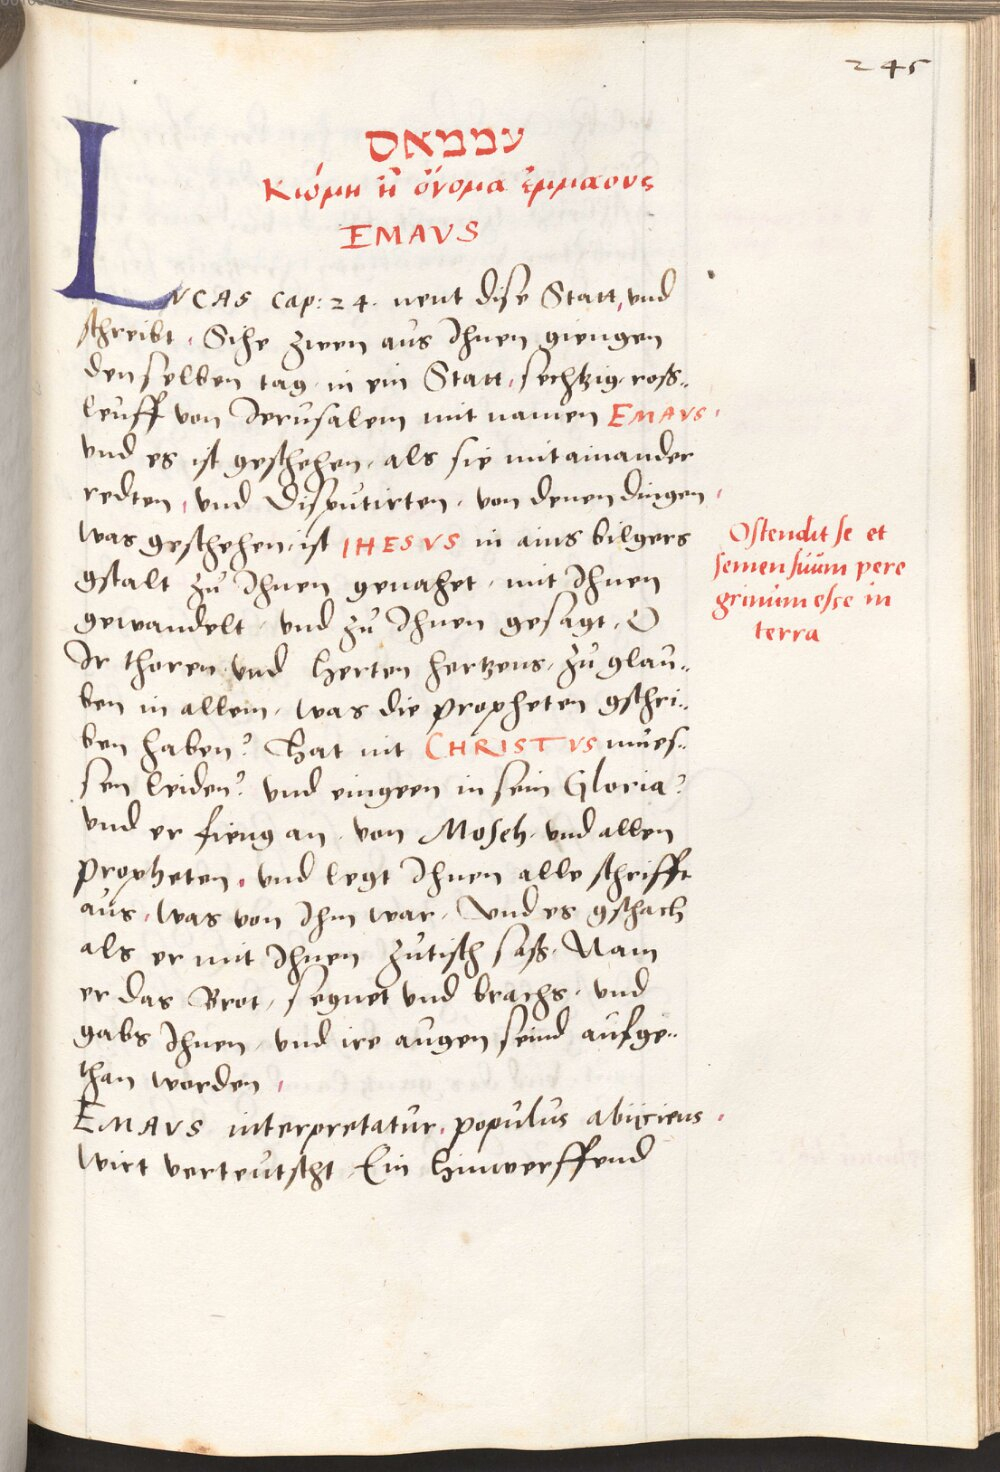 245
עממאס
Κιώμη ᾗ ὄνομα ἐμμαους
EMAVS
LVCAS cap: 24. nent dise Statt, vnd
schreibt, Sihe zwen aus Ihnen giengen
den selben tag in ein Statt, sechtzig ross„
leuff von Jerusalem mit namen EMAVS,
vnd es ist geschehen, als sie mitainander
redten, vnd disputirten, von denen dingen,
was geschehen, ist IHESVS in ains bilgers
gstalt zů Ihnen genahet, mit Ihnen
gewandelt, vnd zů Ihnen gesagt, O
Ir thoren vnd herten hertzens, zů glau„
ben in allem, was die propheten gschri„
ben haben? Hat nit CHRISTVS mues„
sen leiden? vnd eingeen in sein Gloria?
vnd er fieng an, von Moseh, vnd allen
propheten, vnd legt Ihnen alle schrifft
aus, was von Ihm war, Vnd es gschach
als er mit Ihnen zůtisch sass, Nam
er das Brot, segnet vnd brachs, vnd
gabs Ihnen, vnd ire augen seind aufge„
than worden,
EMAVS interpretatur, populus abijciens,
wirt verteutscht, Ein hinwerffend
Ostendit se et
semen suum pere
grinum esse in
terra